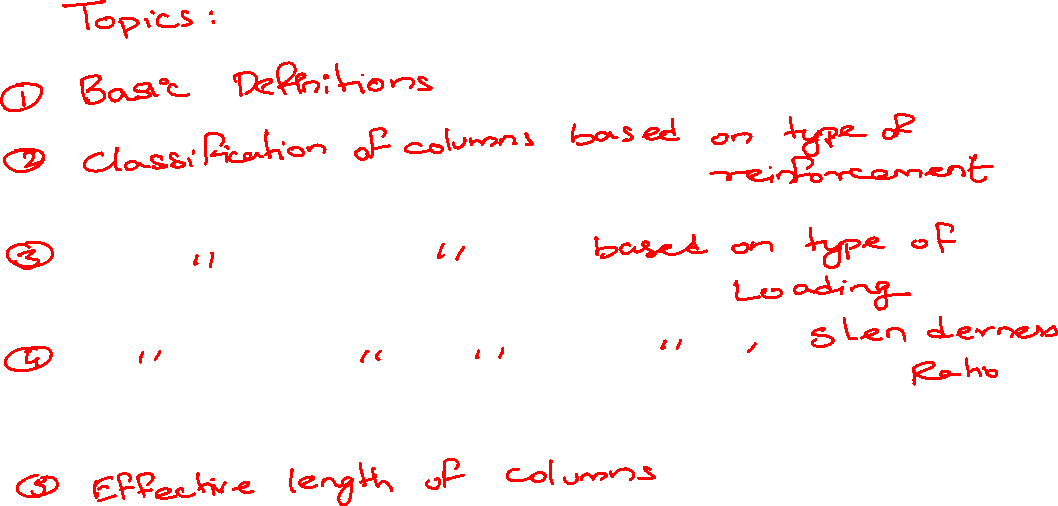 Topics:
① Basic Definitions
② Classification of columns based on type of
reinforcement
③ " " based on type of
Loading
④ " " " " " Slenderness
Ratio
⑤ Effective length of columns